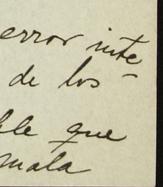 error inte
de los -
ble que
mala